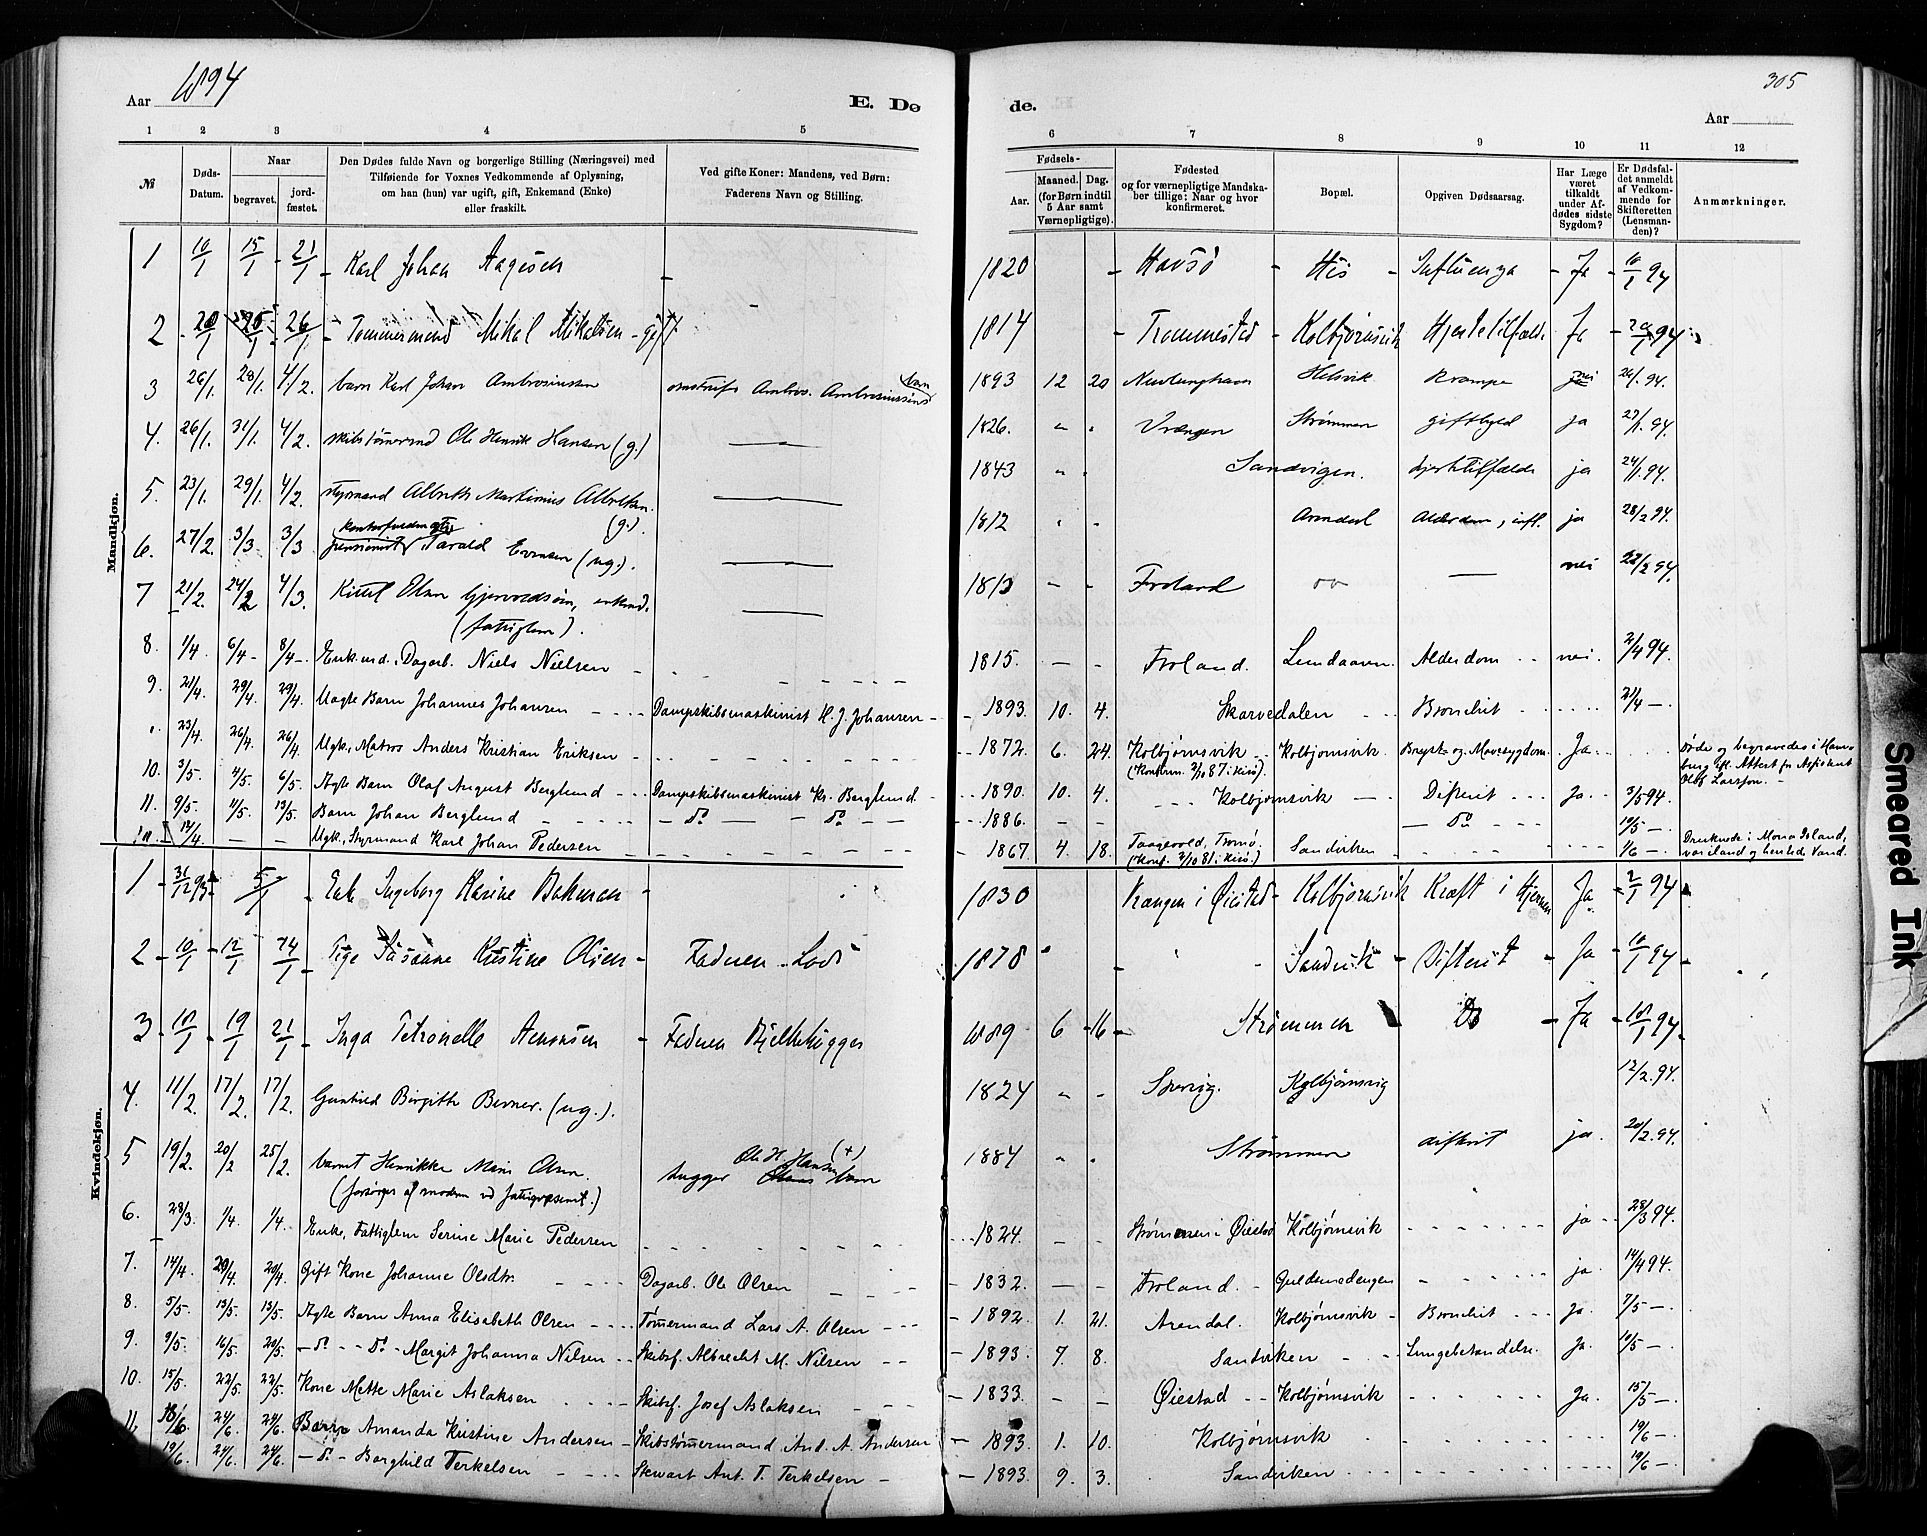 Aar 1894
E. Dø
de.
305
Aar
1 2 3 4 5 6 7 8 9 10 11 12
№
Døds-Datum.
Naar
begravet.
jord-fæstet.
Den Dødes fulde Navn og borgerlige Stilling (Næringsvei) med
Tilføiende for Voxnes Vedkommende af Oplysning,
om han (hun) var ugift, gift, Enkemand (Enke)
eller fraskilt.
Ved gifte Koner: Mandens, ved Børn:
Faderens Navn og Stilling.
Fødsels-
Aar. Maaned. Dag.
(for Børn indtil
5 Aar samt
Værnepligtige).
Fødested
og for værnepligtige Mandska-
ber tillige: Naar og hvor
konfirmeret.
Bopæl.
Opgiven Dødsaarsag.
Har Læge
været
tilkaldt
under Af-
dødes sidste
Sygdom?
Er Dødsfal-
det anmeldt
af Vedkom-
mende for
Skifteretten
(Lensman-
den)?
Anmærkninger.
Mandkjøn.
1 10/1 15/1 21/1 Karl Johan Aagesen 1820 Havsø His Influenza Ja 10/1 94
2 20/1 25/1 26/1 Tømmermand Mikal Mikalsen gift 1814 Trommestad Kolbjørnsvik Hjertetilfælde Ja 94
3 26/1. 28/1. 4/2. barn Karl Johan Ambrosiussen Ambros. Ambrosiussens barn 1893 12 20 Helsvik krampe nei 26/1. 94.
4. 26/1. 31/1. 4/2. skibstømmermd Ole Henrik Hansen (g.) 1826. Vrængen Strømmen ja 27/1. 94.
5. 23/1. 29/1. 4/2. styrmand Albreth Martinius Albretsen. (g.) 1843 Sandvigen. hjertetilfælde ja 24/1.94.
6. 27/2. 3/3 3/3 pensionist Tarald Evensen (ug.). 1812 Arendal Alderdom, infl. ja 28/2 94.
7 21/2. 24/2 4/3. Kittel Olsen enkemd. (fattiglem). Froland nei 22/2 94.
8. 1/4. 6/4 - 8/4 - Enkemd. Dagarb. Niels Nielsen 1815. Froland. Alderdom nei. 2/4 94.
9. 21/4. 29/4. 29/4. Uægte Barn Johannes Johansen Dampskibsmaskinist H. J. Johansen 1893. 10. 4. Skarvedalen Bronchit 21/4 -
23/4. 26/4. 26/4. Ugk. Matros Anders Kristian Eriksen 1872. 6. 24. Kolbjørnsvik (Konfirm. 2/10 87 i Hisø). Kolbjørnsvik. Bryst- og Mavesygdom. Ja. Døde og begravedes i Ham-
burg ifl. Attest fr Assistent
Olaf Larssen.
10. 3/5. 4/5. 6/5. Ægte Barn Olaf August Berglund Dampskibsmaskinist Kr. Berglund. 1890. 10. 4. Kolbjørnsvik Difterit Ja. 3/5 94.
11. 9/5. 11/5. 13/5. Barn Johan Berglund do do 1886. do 10/5 -
14/4. Ugk. Styrmand Karl Johan Pedersen 1867. 4. 18. Tromø. (Konf. 2/10 81 i Hisø). Sandviken 1/6 - Druknede i Mona Island,
var iland og hentede Vand.
Kvindekjøn.
1 31/12 93 5/1 Enke Ingeborg Karine Bekman 1830 Vrængen i Øiestad Kolbjørnsvik Kræft i Hjernen Ja 2/1 94
2 10/1 12/1 14/1 Pige Susanne Kristine Olsen Faderen Lods 1878 Sandvik Difterit Ja 10/1 94
3 18/1 19/1 21/1 Inga Petronelle Aanonsen Faderen Bjelkehugger 1889 6 16 Strømmen Do Ja 18/1 94
4. 11/2. 17/2. 17/2. Gunhild Birgitte Berner. (ug.). 1824 Sverig. Kolbjørnsvig 12/2. 94.
5 19/2. 20/2 25/2. barnet Henrikke Marie Olsen. (forsørges af modern ved fattigvæsenet.) Ole H. Hansen (+) hugger barn 1884 Strømmen difterit ja. 20/2. 94.
6. 28/3. 1/4. 1/4. Enke, Fattiglem Serine Marie Pedersen 1824. Strømmen i Øiestad Kolbjørnsvik ja 28/3 94.
7. 14/4. 20/4. 20/4. Gift Kone Johanne Olsdtr. Dagarb. Ole Olsen 1832. Froland. Guldsmedengen ja. 14/4 94.
8. 5/5. 13/5. 13/5. Ægte Barn Anna Elisabeth Olsen Tømmermand Lars A. Olsen 1892. 1. 21. Arendal. Kolbjørnsvik Bronchit Ja. 7/5 -
9. 9/5. 16/5. 20/5. do do Margit Johanna Nilsen Skibsf. Albrecht M. Nilsen 1893. 7. 8. Sandviken Lungebetændelse. Ja. 10/5 -
10. 15/5. 22/5. 22/5. Kone Mette Marie Aslaksen Skibsf. Josef Aslaksen 1833. Øiestad Kolbjørnsvik Ja. 15/5 -
11. 18/6 24/6. 24/6. Barn Amanda Kristine Andersen Skibstømmermand And. A. Andersen 1893. 1. 10. Kolbjørnsvik 19/6 -
19/6. 24/6. 24/6. do Borghild Terkelsen Stewart Ant. T. Terkelsen 1893. 9. 3. Sandviken 19/6 -
Smeared Ink